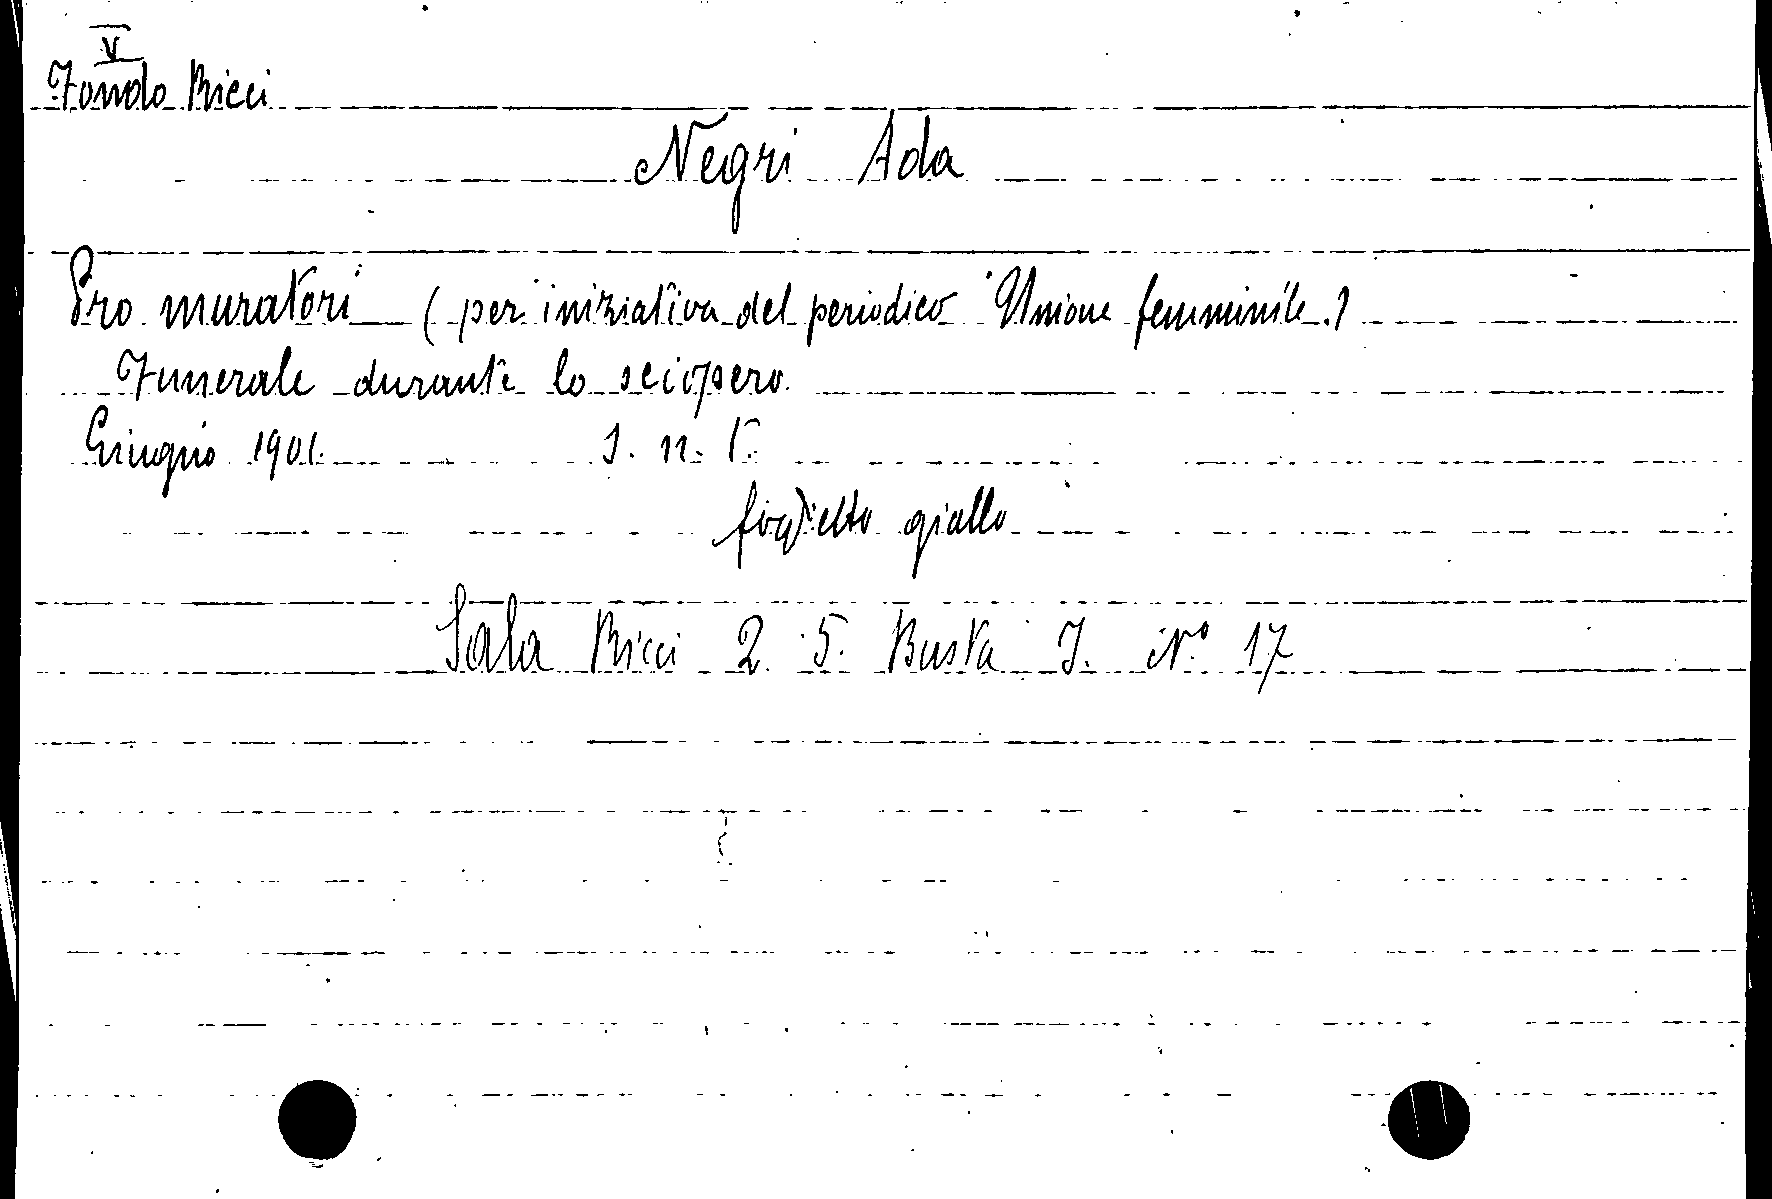 V
Fondo Ricci
Negri Ada
Pro muratori (per iniziativa del periodico "Unione femminile.)
Funerale durante lo sciopero.
Giugno 1901. s. n. t.
foglietto giallo
Sala Ricci 2. 5. Busta I. N° 17